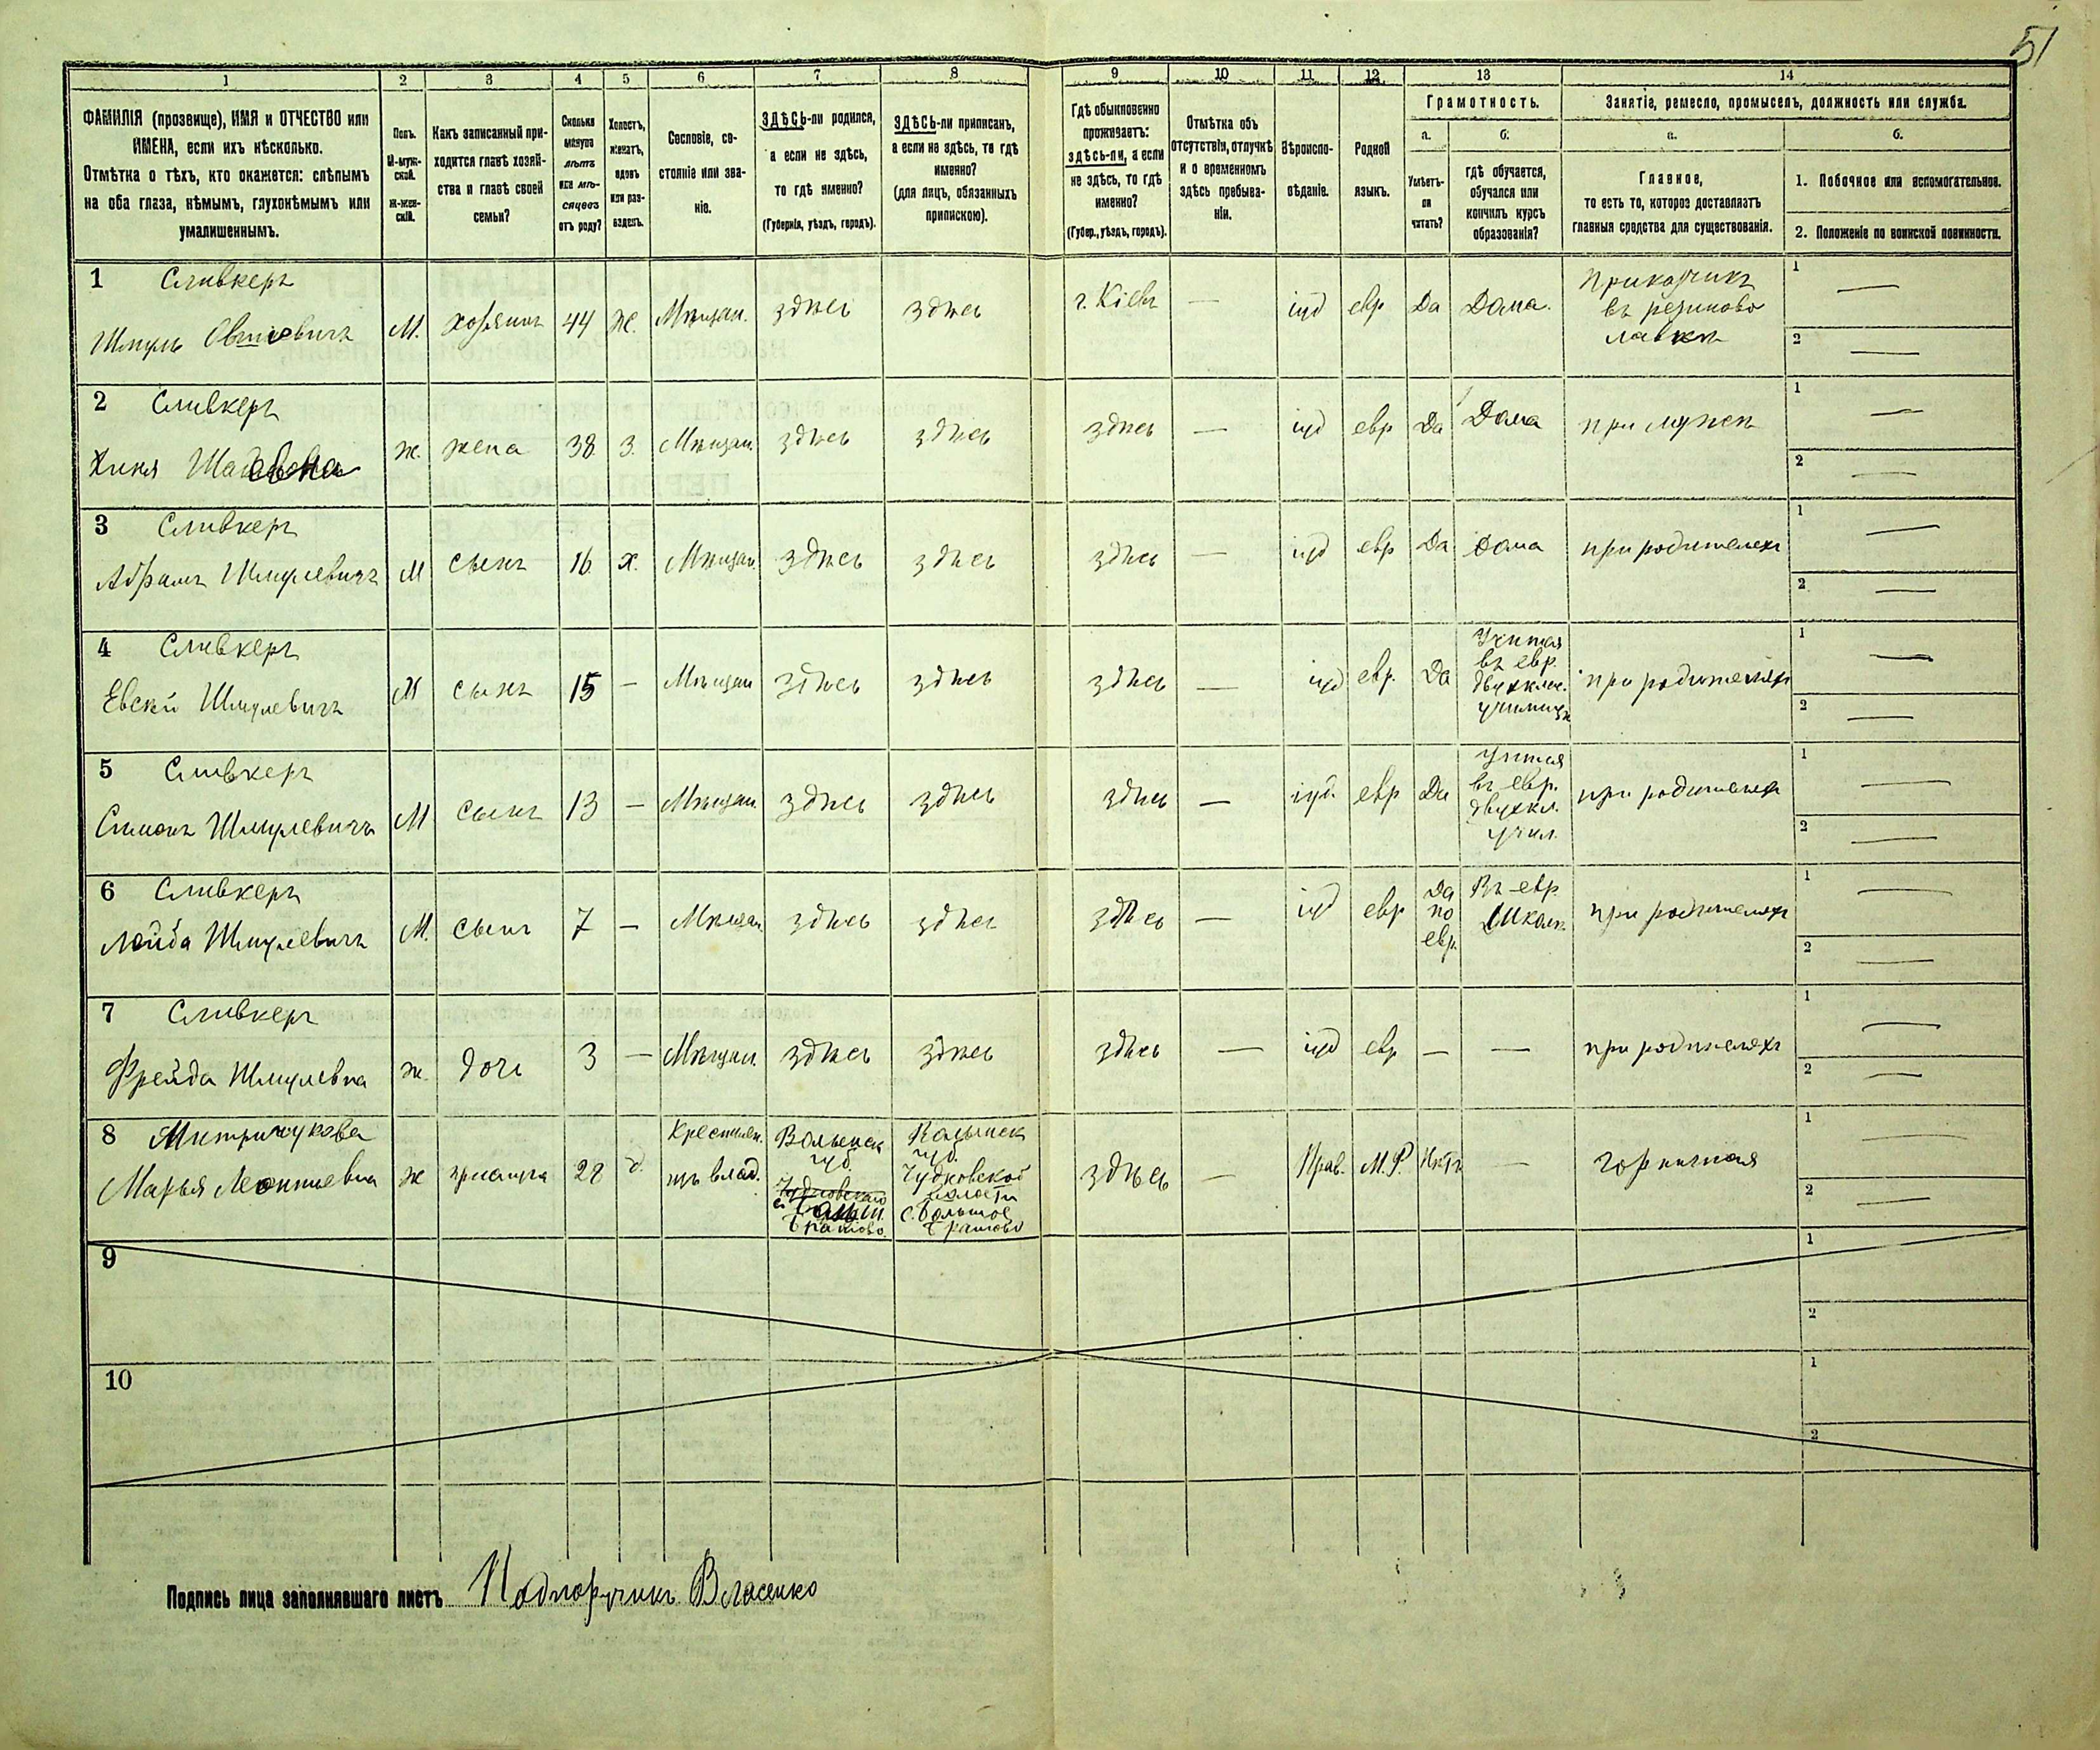 51
1 2 3 4 5 6 7 8 9 10 11 12 13 14
ФАМИЛІЯ (прозвище), ИМЯ и ОТЧЕСТВО или
ИМЕНА, если ихъ нѣсколько.
Отмѣтка о тѣхъ, кто окажется: слѣпымъ
на оба глаза, нѣмымъ, глухонѣмымъ или
умалишеннымъ.
Полъ.
М-муж-
ской.
Ж-жен-
скій.
Какъ записанный при-
ходится главѣ хозяй-
ства и главѣ своей
семьи?
Сколько
минуло
лѣтъ
или мѣ-
сяцевъ
отъ роду?
Холостъ,
женатъ,
вдовъ
или раз-
веденъ.
Сословіе, со-
стояніе или зва-
ніе.
ЗДѢСЬ-ли родился,
а если не здѣсь,
то гдѣ именно?
(Губернія, уѣздъ, городъ).
ЗДѢСЬ-ли приписанъ,
а если не здѣсь, то гдѣ
именно?
(для лицъ, обязанныхъ
припискою).
Гдѣ обыкновенно
проживаетъ:
здѣсь-ли, а если
не здѣсь, то гдѣ
именно?
(Губер., уѣздъ, городъ).
Отмѣтка объ
отсутствіи, отлучкѣ
и о временномъ
здѣсь пребыва-
ніи.
Вѣроиспо-
вѣданіе.
Родной
языкъ.
Грамотность.
а.
Умѣетъ-
ли
читать?
б.
гдѣ обучается,
обучался или
кончилъ курсъ
образованія?
Занятіе, ремесло, промыселъ, должность или служба.
а.
Главное,
то есть то, которое доставляетъ
главныя средства для существованія.
б.
1. Побочное или вспомогательное.
2. Положеніе по воинской повинности.
1 Сливкеръ
Шмуль Овшіевичъ М. хозяинъ 44 Ж. Мѣщан. здѣсь здѣсь г. Кіевъ — іуд евр Да Дома. Прикащикъ
въ резиново
лавкѣ
1 —
2 —
2 Сливкеръ
Хиня ж. жена 38 З. Мѣщан. здѣсь здѣсь здѣсь — іуд евр Да Дома при мужѣ
1 —
2 —
3 Сливкеръ
Абрамъ Шмулевичъ М сынъ 16 х. Мѣщан. здѣсь здѣсь здѣсь — іуд евр Да дома при родителяхъ
1 —
2 —
4 Сливкеръ
Евсей Шмулевичъ М сынъ 15 — Мѣщан здѣсь здѣсь здѣсь — іуд евр. Да Учится
въ евр.
двухклас.
училищѣ
при родителяхъ
1 —
2 —
5 Сливкеръ
Симонъ Шмулевичъ М сынъ 13 — Мѣщан. здѣсь здѣсь здѣсь — іуд. евр Да Учится
въ евр.
двухкл.
учил.
при родителяхъ
1 —
2 —
6 Сливкеръ
Лейба Шмулевичъ М. сынъ 7 — Мѣщан. здѣсь здѣсь здѣсь — іуд евр Да
по
евр.
Въ евр.
Школѣ
при родителяхъ
1 —
2 —
7 Сливкеръ
Фрейда Шмулевна ж. дочь 3 — Мѣщан. здѣсь здѣсь здѣсь — іуд евр — — при родителяхъ
1 —
2 —
8
Марья Леонтіевна ж прислуга 28 д. Крестьян.
изъ влад.
Волынск
губ.
Волынск
губ.
Чудновской
волости
с. Большое
здѣсь — Прав. М.Р. Нѣтъ — горничная
1 —
2 —
9
1
2
10
1
2
Подпись лица заполнявшаго листъ Подпоручикъ Власенко